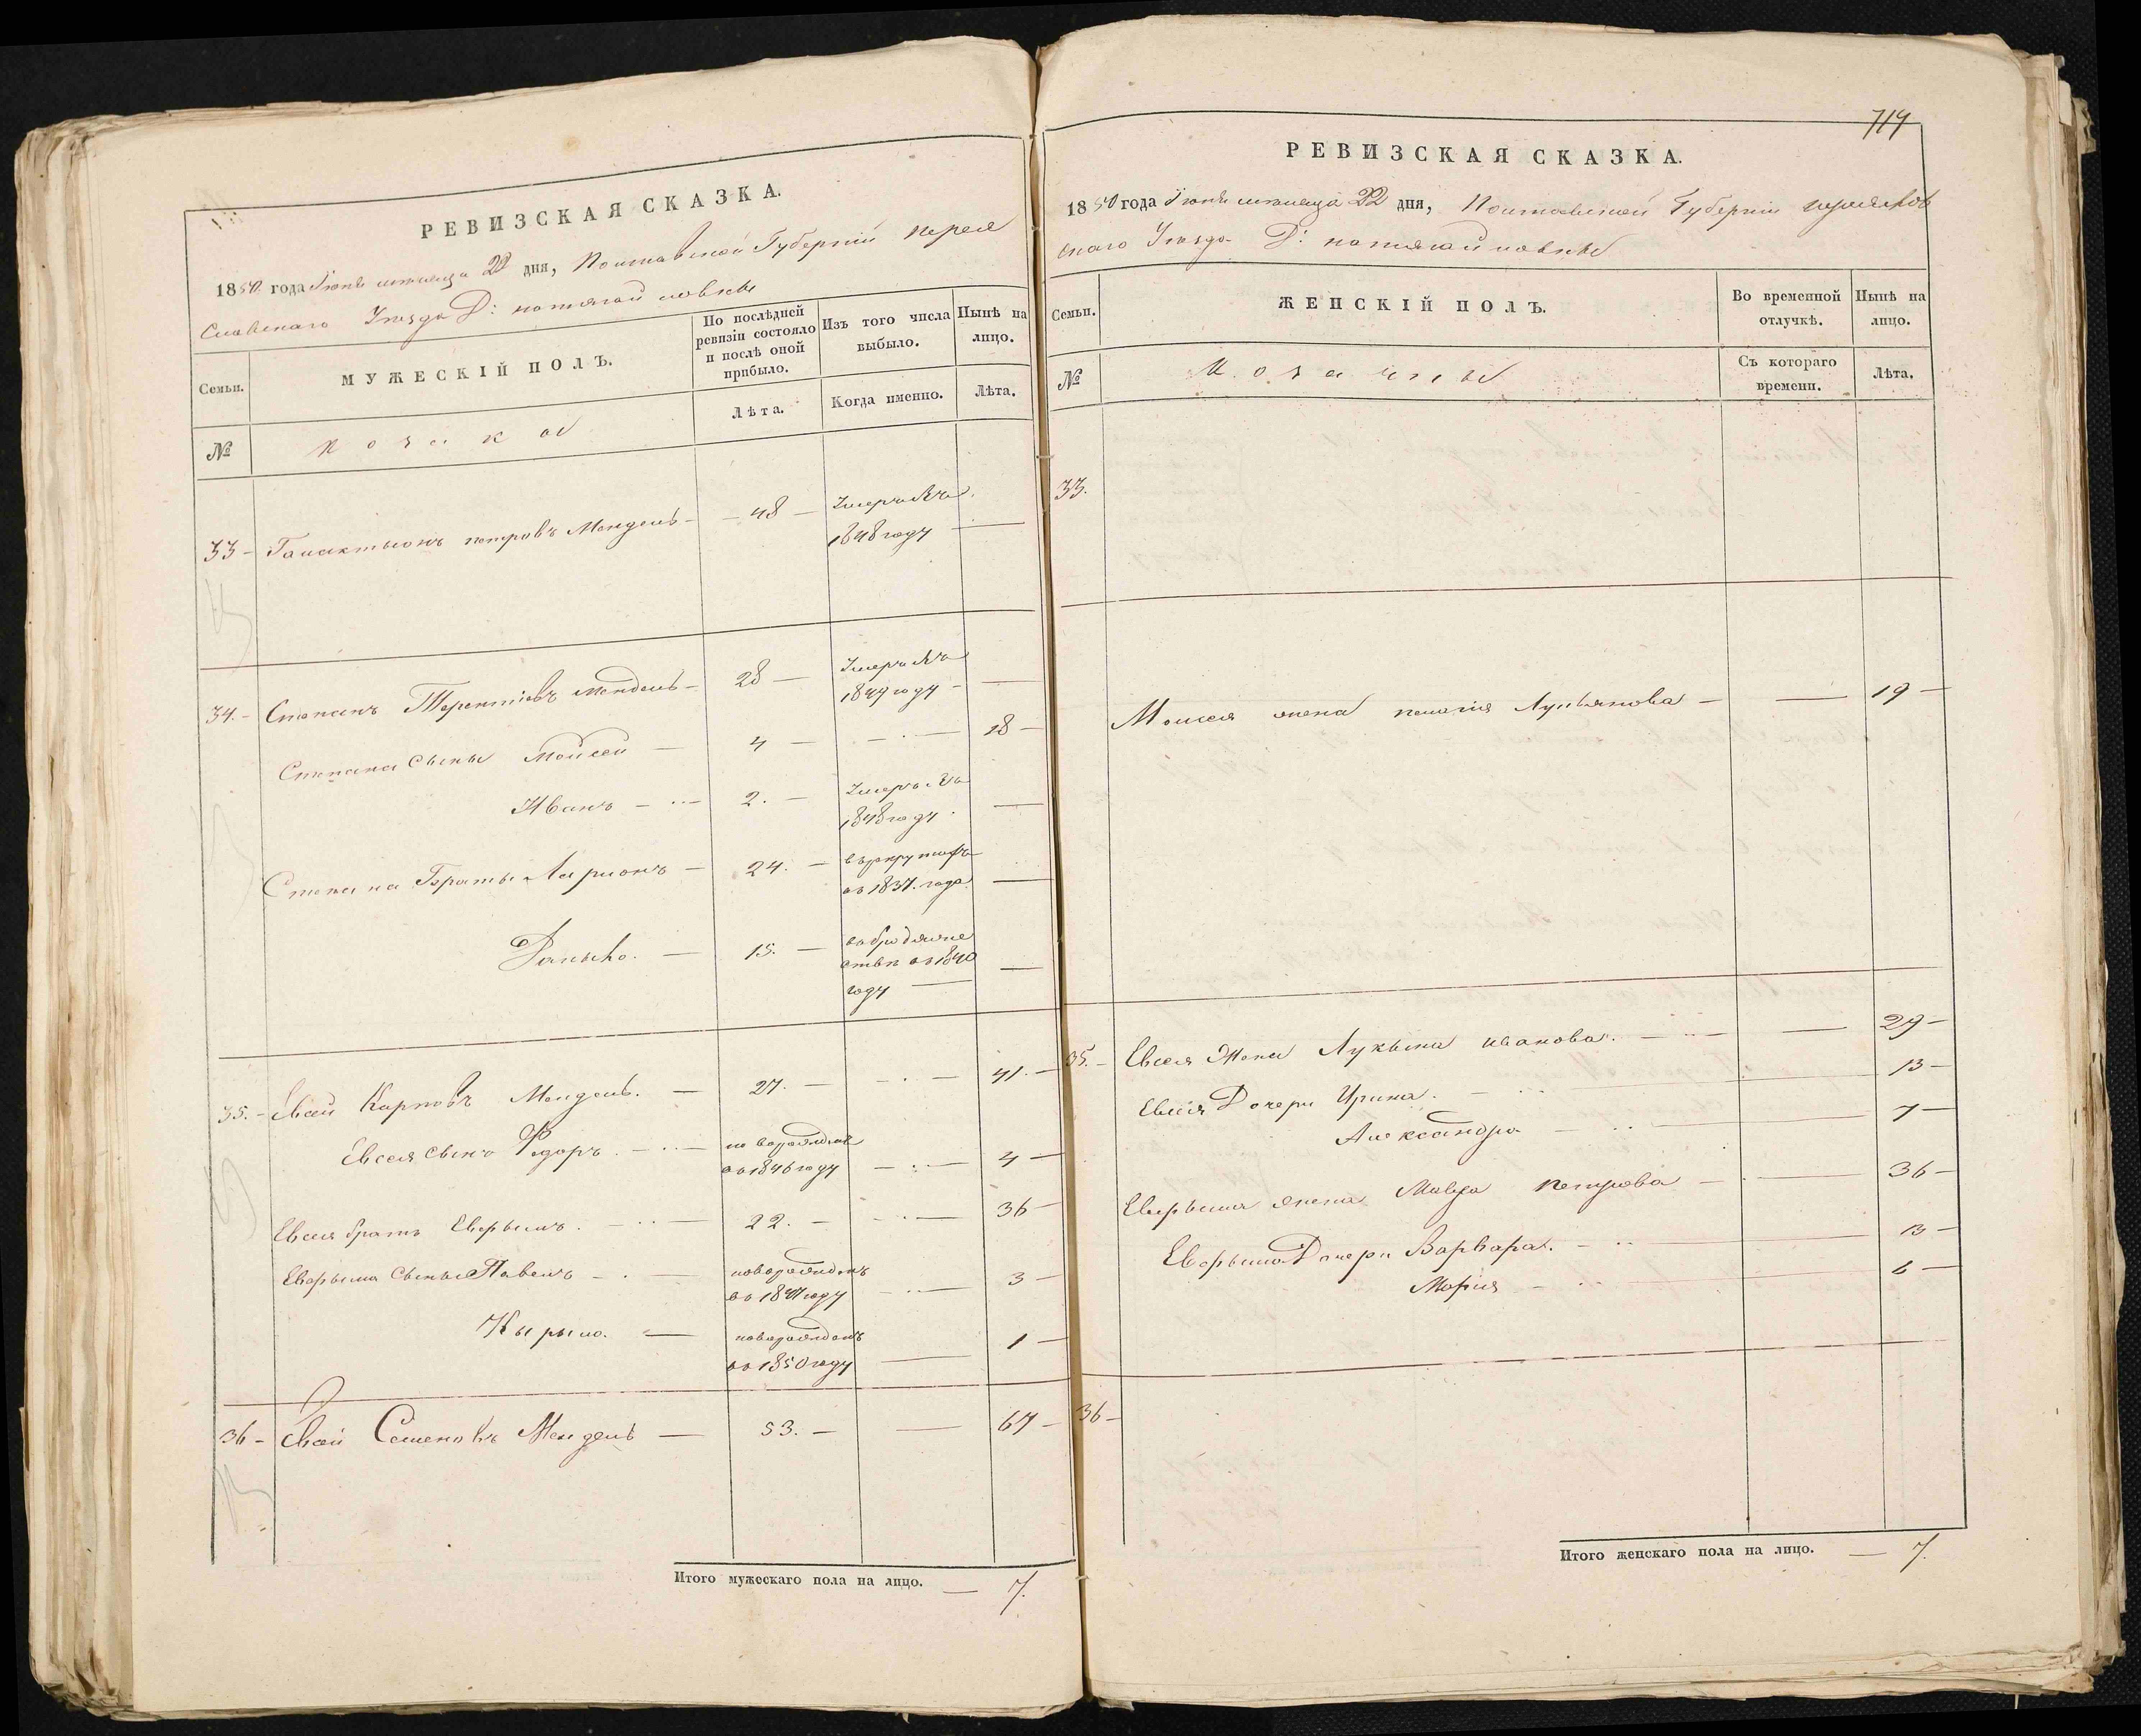 РЕВИЗСКАЯ СКАЗКА.
1850 года Іюня мѣсяца 22 дня, Полтавской Губерніи Перея
славскаго Уѣзда Д:
Семьи.
МУЖЕСКІЙ ПОЛЪ.
По послѣдней ревизіи состояло и послѣ оной прибыло.
Изъ того числа выбыло.
Нынѣ на лицо.
№
Козаки
Лѣта.
Когда именно.
Лѣта.
33 - Галактіонъ Петровъ Мендель - 48 - Умеръ въ
1848 году —
34. - Степанъ Терентіевъ Мендель - 28 — Умеръ въ
1849 году - —
Степана сыны Мойсей — 4 — - . — 18 -
Иванъ - ..- 2. - Умеръ въ
1848 году . —
Степана братья Ларионъ - 24. - въ рекрутахъ
съ 1837. года. —
Даныло. — 15. - въ бродяжне
ствѣ съ 1840
году — —
35. - Евсей Карповъ Мендель. — 27. - - . — 41. -
Евсея сынъ Федоръ. - ..- новорожденъ
въ 1846 году - .. — 4 —
Евсея братъ Евфымъ. - .. — 22. - - .. — 36 -
Евфыма сыны Павелъ - . — новорожденъ
въ 1847 году - .. — 3 -
Кырыло. — новорожденъ
въ 1850 году — 1 -
36 - Евсей Семеновъ Мендель — 53. - — 67 -
Итого мужескаго пола на лицо. — 7.
719
РЕВИЗСКАЯ СКАЗКА.
1850 года Іюня мѣсяца 22 дня, Полтавской Губерніи Переяслав
скаго Уѣзда Д:
Семьи.
ЖЕНСКІЙ ПОЛЪ.
Во временной отлучкѣ.
Нынѣ на лицо.
№
Козачки
Съ котораго времени.
Лѣта.
33.
Моисея жена Пелагія Лукьянова - — 19 -
35. - Евсея жена Лукьяна Иванова. - .. - — 29 -
Евсея Дочери Ирина. - .. — 13 -
Александра - .. — 7 -
Евфыма жена Мавра Петрова - . — 36 -
Евфыма Дочери Варвара. - .. — 13 -
Марія - .. — 6 -
36 -
Итого женскаго пола на лицо. — 7.